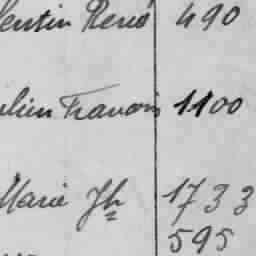 lentin René 490
ulien Francois 1100
Marie Jh 1733
595